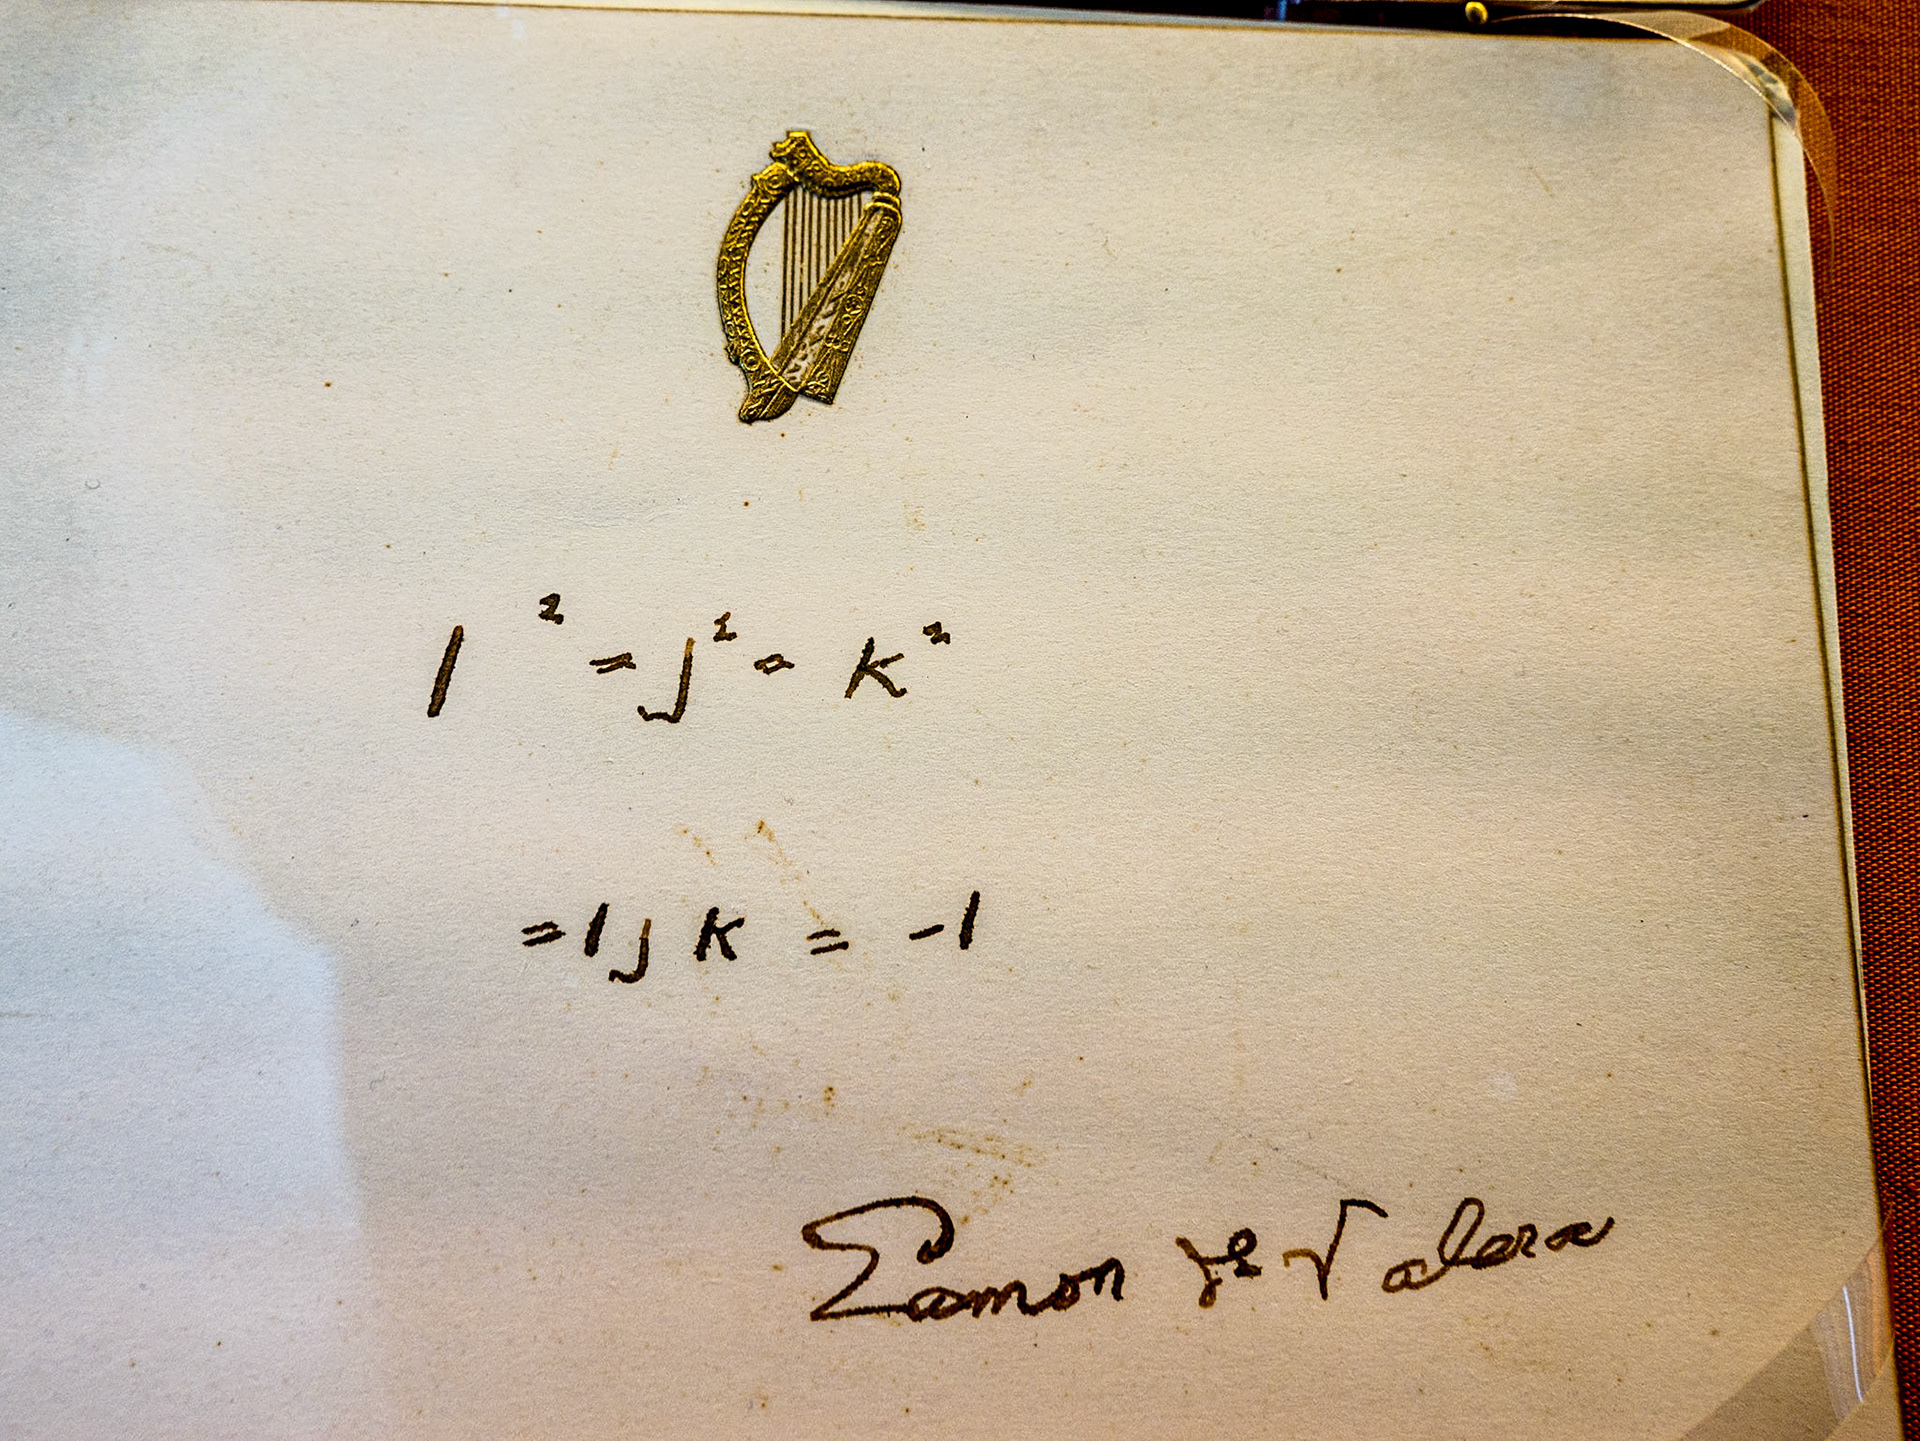 i² = j² = k²
= i j k = -1
Eamon de Valera